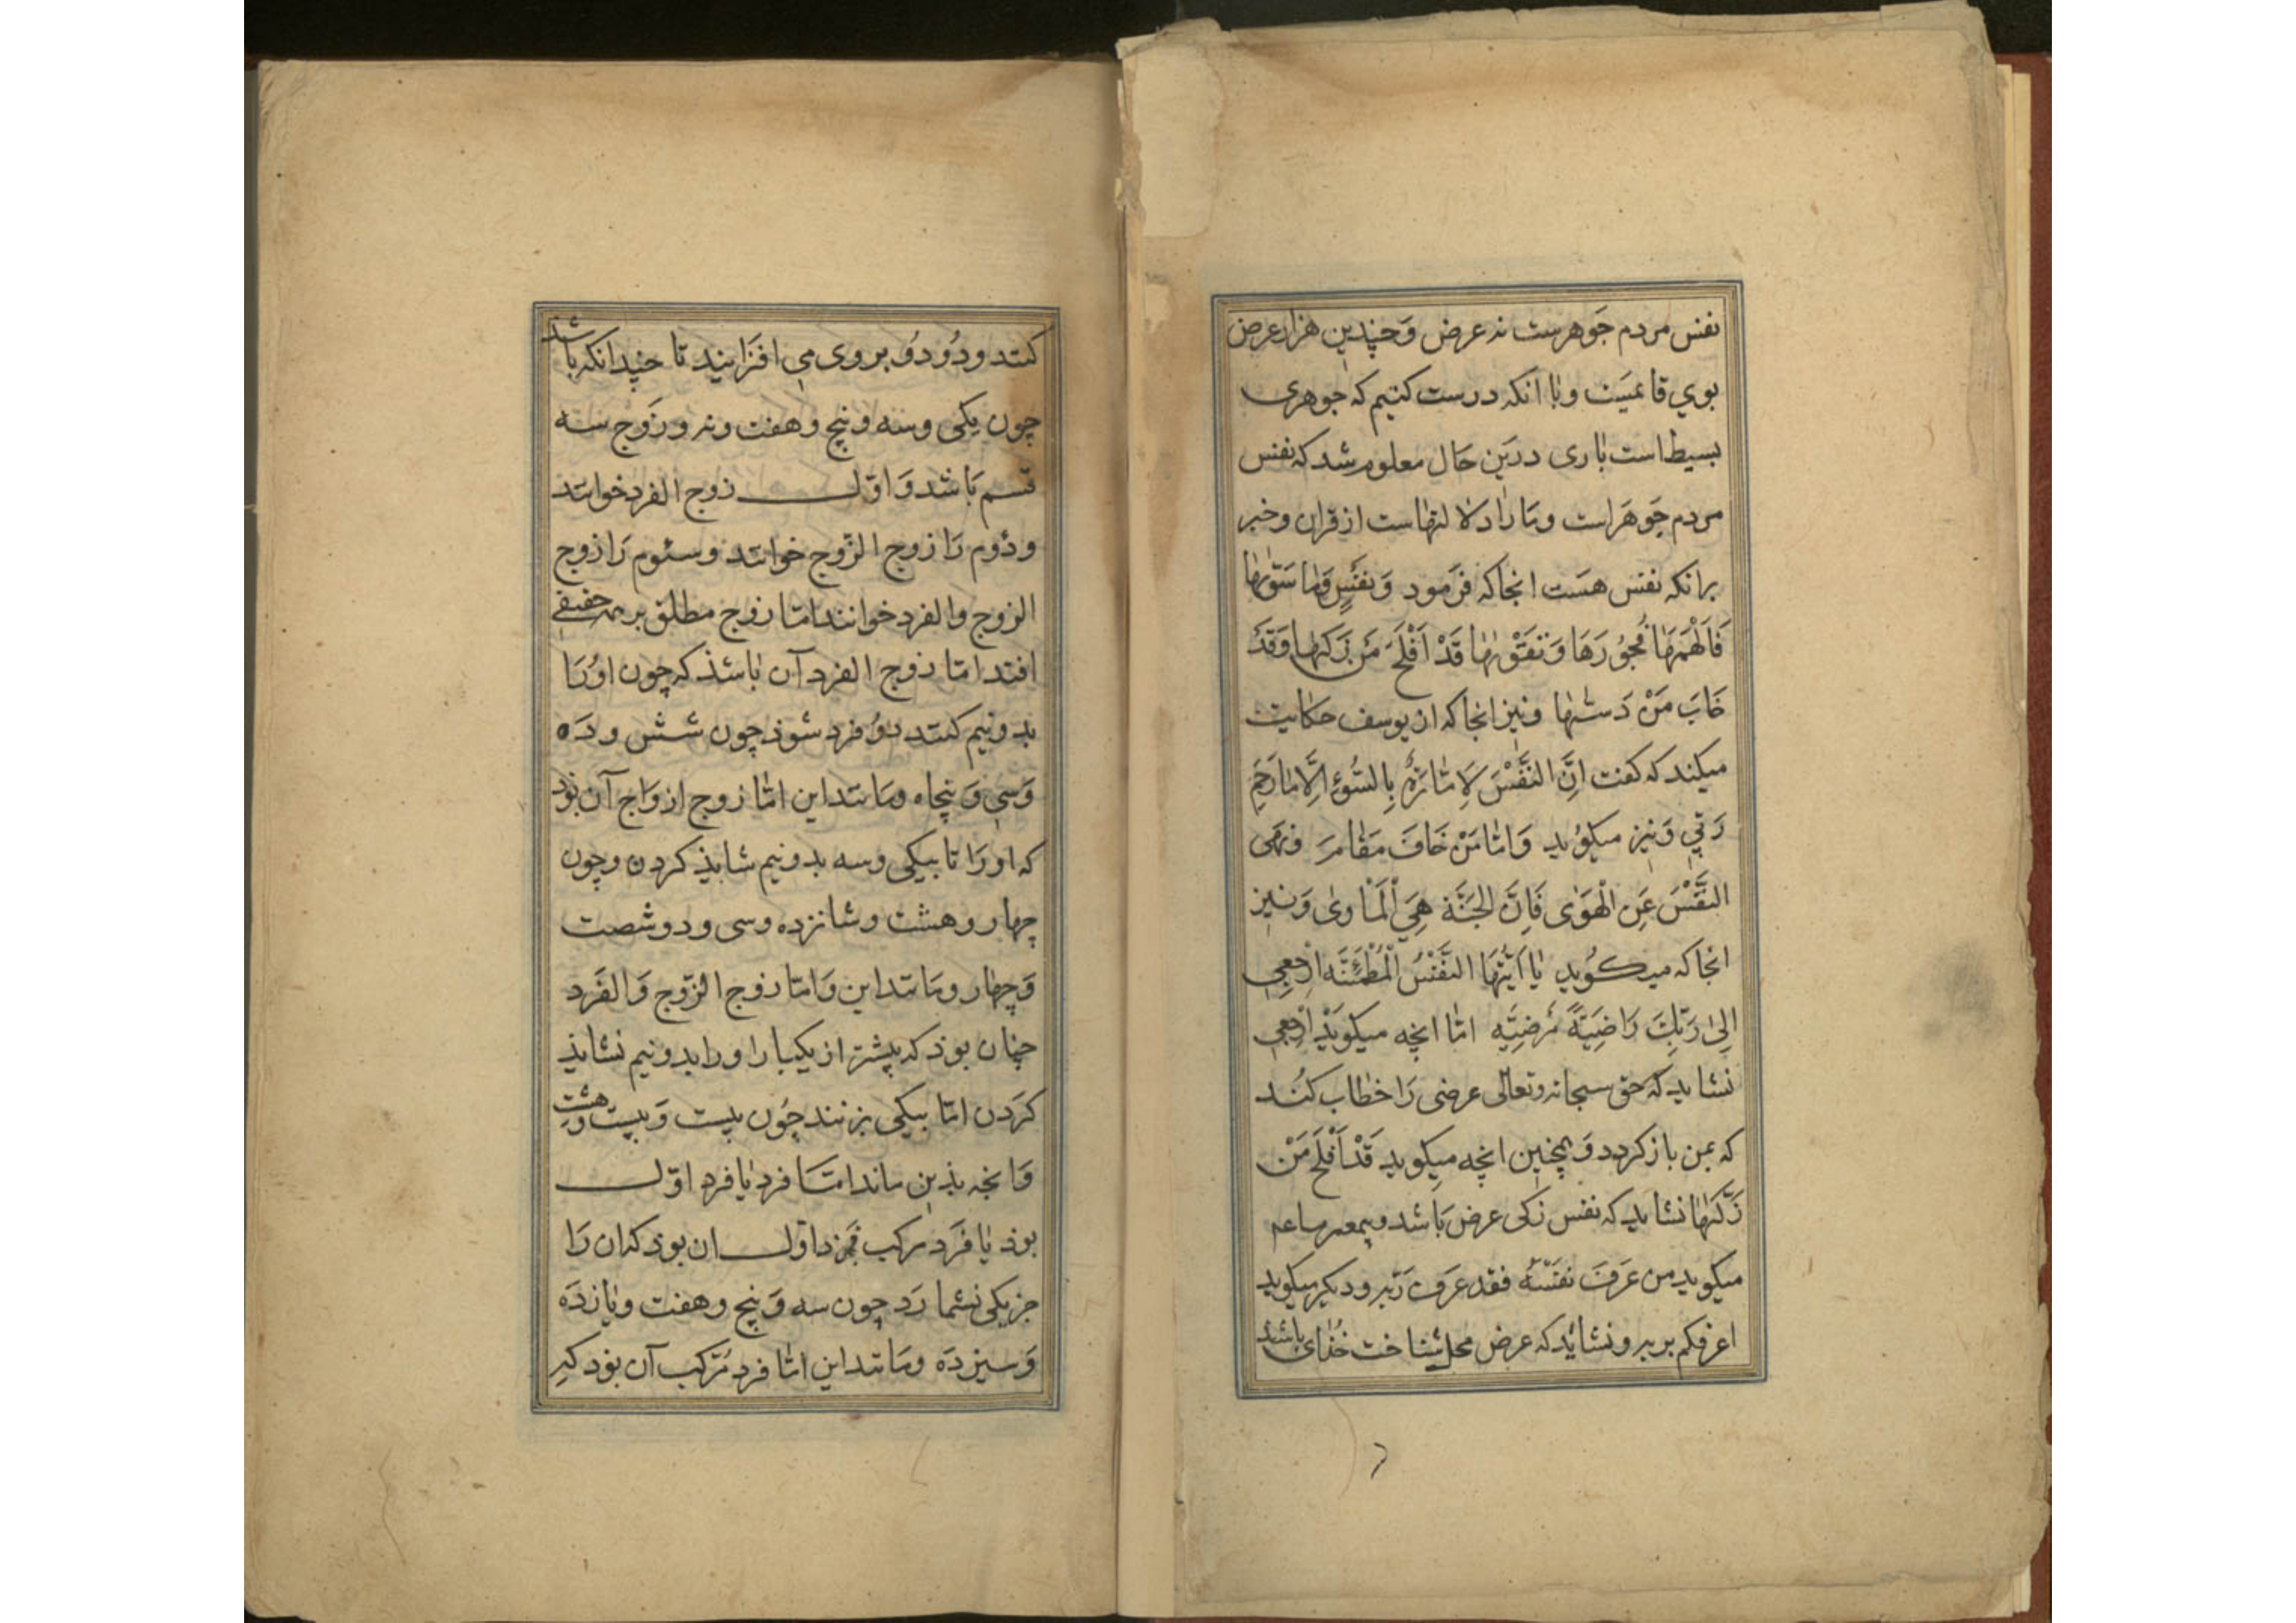 نفس مردم جوهرست نه عرض وَچندین هزار عرض
بوی قایمست وبا انکه درست کنیم که جوهری
بسیط است باری درین حَال معلوم شد که نفس
مردم جَوهَراست ومَا رَا دلالتهاست از قران وخبر
برانکه نفس هسَت انجاکه فرَمود وَنَفْسٍ وَمَا سَوّٰیهَا
فَاَلْهَمَهَا فُجُورَهَا وَتَقْوٰیهَا قَدْ اَفْلَحَ مَن زَکّٰیهَا وَقَدْ
خَابَ مَنْ دَسّٰیهَا ونیز انجاکه از یوسف حکایت
میکند که کفت اِنَّ النَّفْسَ لَاَمَّارَةٌ بِالسُّوءِ اِلَّا مَا رَحِمَ
رَبّی وَنیز میکوید وَاَمَّا مَنْ خَافَ مَقَامَ رَ ونهی
النَّفْسَ عَنِ الْهَوٰی فَاِنَّ الجَنَّة هِیَ اْلمَاْوٰی وَنیز
انجاکه میکوید یَا اَیَّتُهَا النَّفْسُ الْمُطْمَئِنَّه ارْجِعِی
اِلیٰ رَبّکِ رَاضِیَةً مَرْضِیَّه امّا انچه میکویَد اِرْجِعِی
نشاید که حق سبحانه وتعالی عرضی رَا خطاب کُند
که بمن باز کردد وَهمچنین انچه میکوید قَدْ اَفْلَحَ مَنْ
زَکّٰیهَا نشاید که نفس زکی عرض بَاشد وپیغمبر ما عم
میکوید من عَرَفَ نَفْسَهُ فقد عَرَف رَبّه ودیکر میکوید
اعرفکم بربه ونشاید که عرض محل شناخت خُدای باشد
کنند ودُودُو بروی می افزَایند تا چندانکه باشد
چون یکی وسه وپنج وهفت ونه وزَوج سه
قسم بَاشد وَاوّل زوج الفرد خوانند
ودُوم رَا زوج الزّوج خوانند وسئوم رَا زوج
الزوج والفرد خوانند امّا زوج مطلق بر همه حقیقی
افتد امّا زوج الفرد آن باشذ که چون اورَا
بدونیم کنند دوُ فرد شوذ چون شش ودَه
وَسی وَپنجاه ومَانند این امّا زوج ازوَاج آن بوَد
که اورَا تا بیکی وسه بدونیم شایذ کردن وچون
چهار وهشت وشانزده وسی ودو وشصت
وَچهار ومَانند این وَامّا زوج الزّوج وَالفَرد
چنان بوذ که بیشتر از یکبار اورا بدونیم نشایذ
کرَدن امّا بیکی بزنند چُون بیست وَبیست وَهشت
وَانچه بذین ماند امّا فرد یا فرد اوّل
بوذ یا فرَد مرکب فرد اوّل ان بوذ که ان رَا
جز یکی نشمارَد چون سه وَپنج وهفت ویازدَه
وَسیزدَه ومَانند این امّا فرد مرَکب آن بوَد که